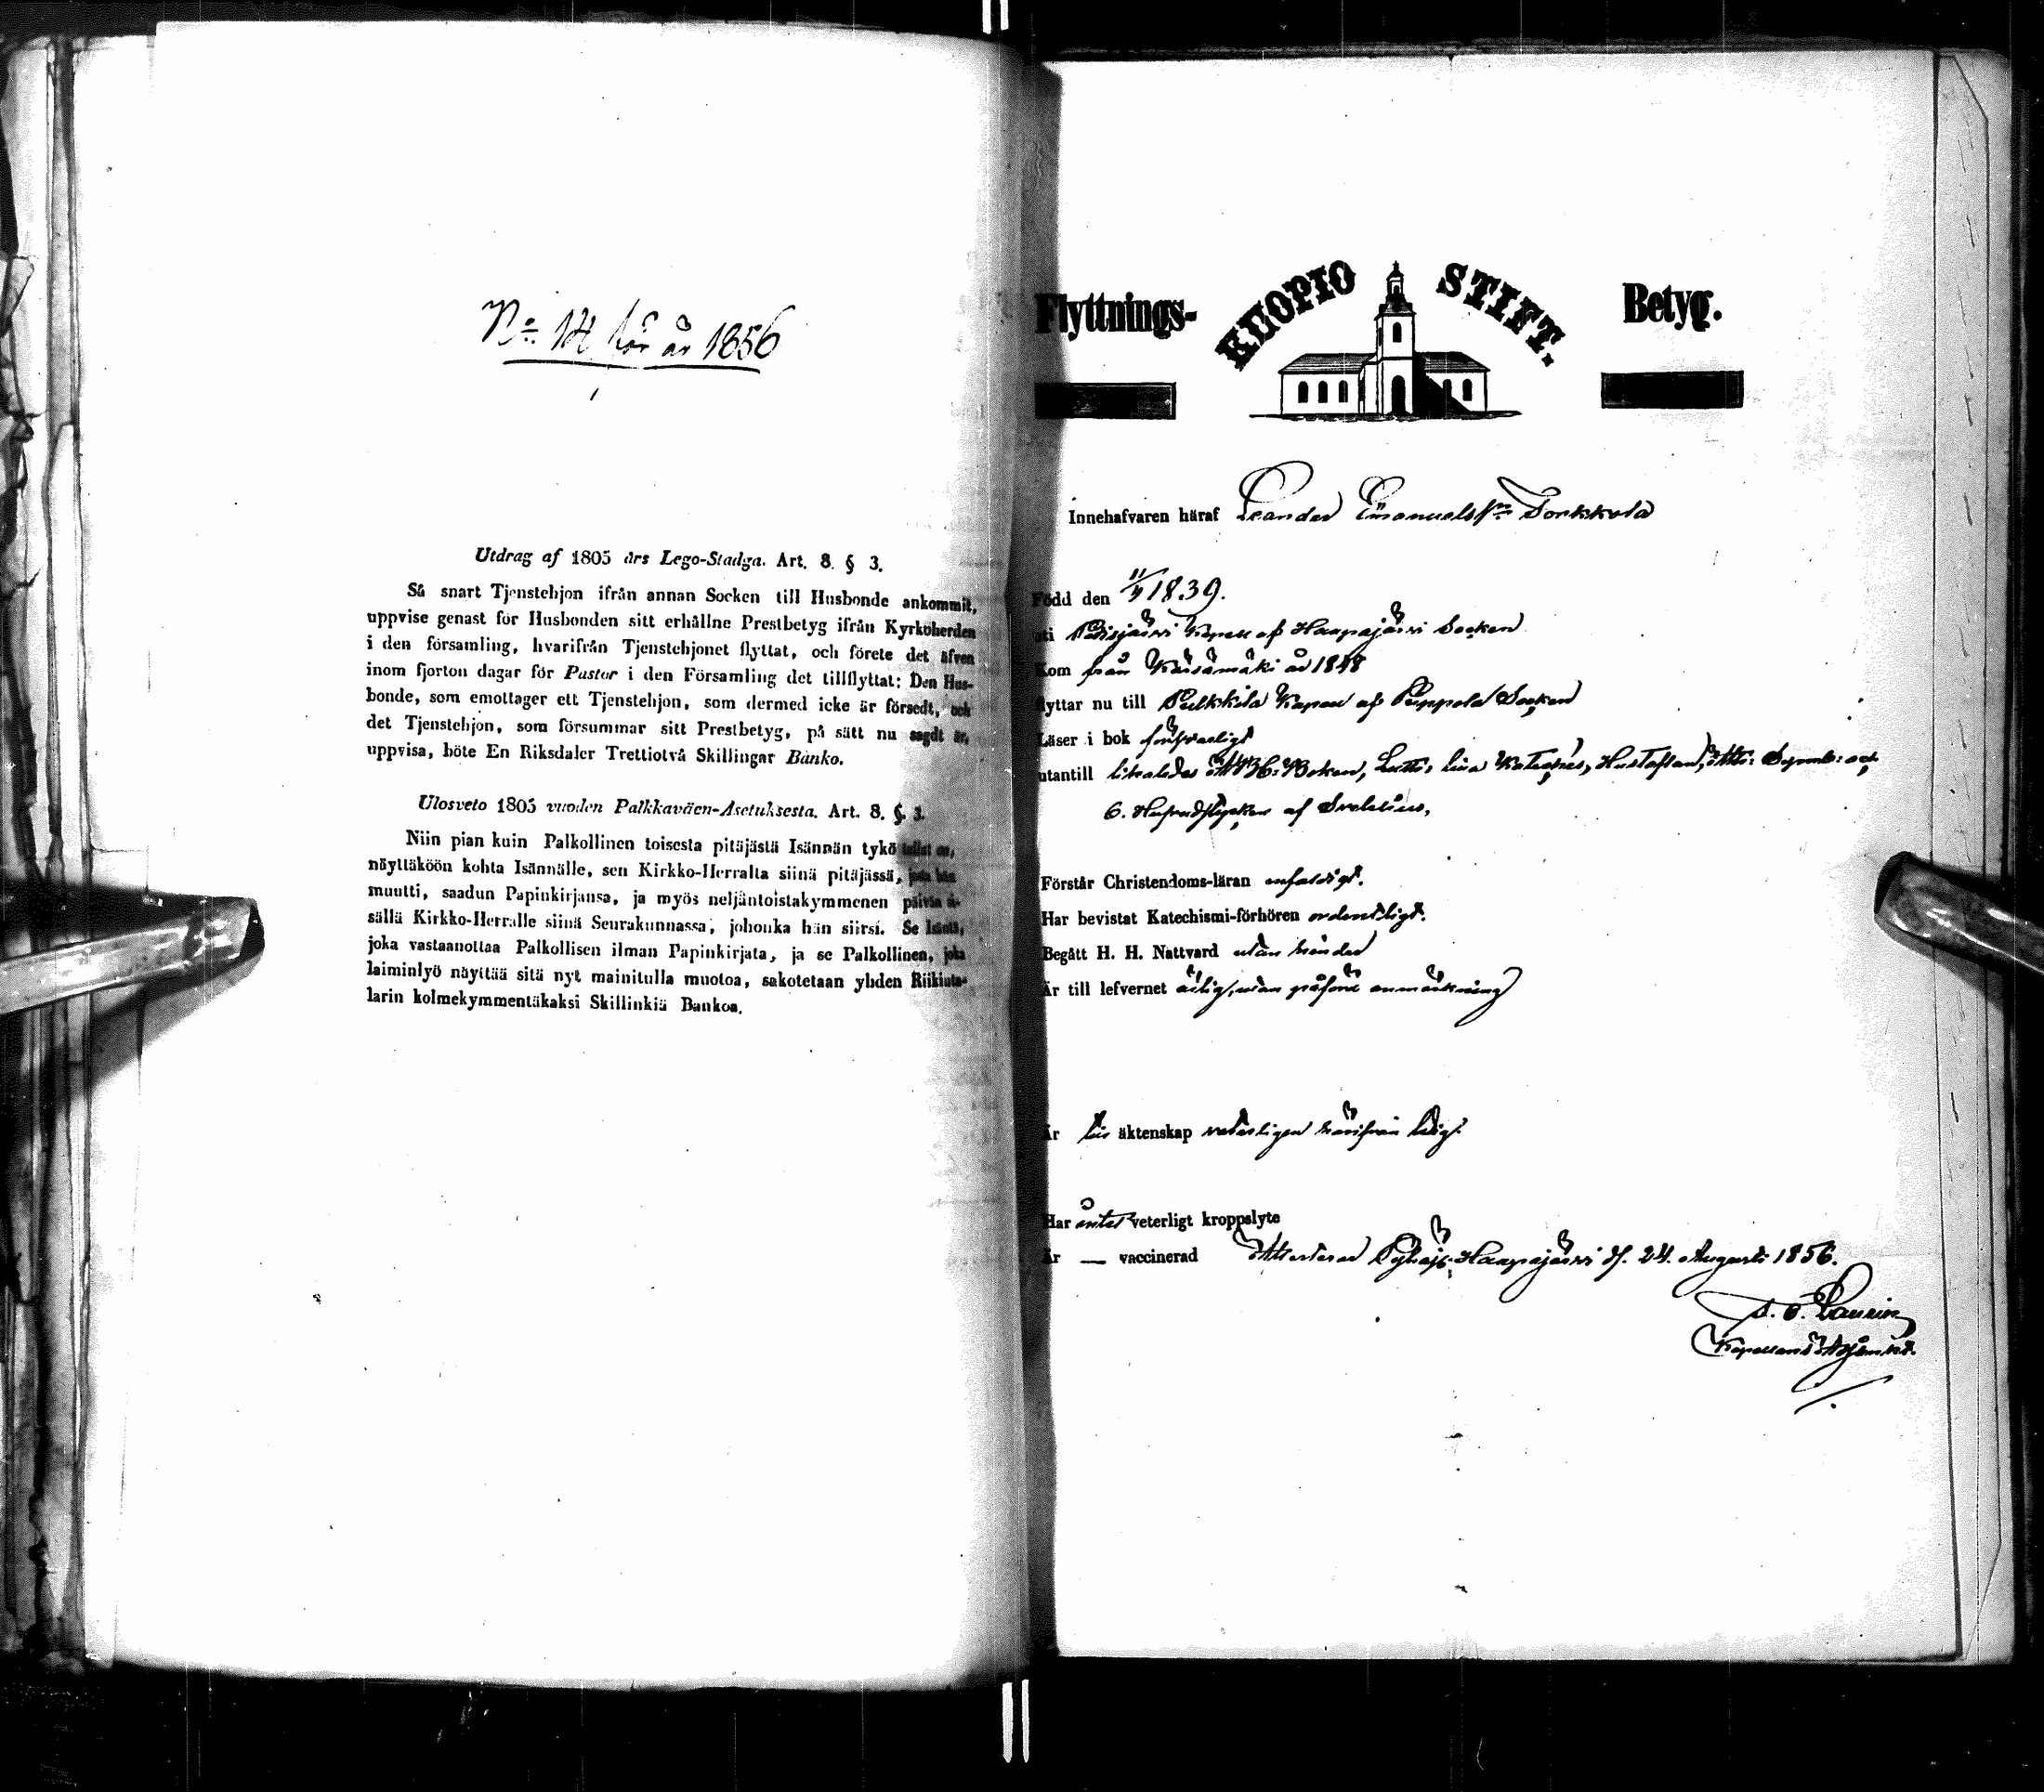 No 14 för år 1856
Utdrag af 1805 års Lego-Stadga. Art. 8. § 3.
Så snart Tjenstehjon ifrån annan Socken till Husbonde ankommit,
uppvise genast för Husbonden sitt erhållne Prestbetyg ifrån Kyrkoherden
i den församling, hvarifrån Tjenstehjonet flyttat, och förete det äfven
inom fjorton dagar för Pastor i den Församling det tillflyttat: Den Hus-
bonde, som emottager ett Tjenstehjon, som dermed icke är försedt, och
det Tjenstehjon, som försummar sitt Prestbetyg, på sätt nu sagdt är,
uppvisa, böte En Riksdaler Trettiotvå Skillingar Banko.
Ulosveto 1805 vuoden Palkkaväen-Asetuksesta. Art. 8. §. 3.
Niin pian kuin Palkollinen toisesta pitäjästä Isännän tykö tullut on,
näyttäköön kohta Isännälle, sen Kirkko-Herralta siinä pitäjässä, josta hän
muutti, saadun Papinkirjansa, ja myös neljäntoistakymmenen päivän si-
sällä Kirkko-Herralle siinä Seurakunnassa, johonka hän siirsi. Se Isäntä,
joka vastaanottaa Palkollisen ilman Papinkirjata, ja se Palkollinen, joka
laiminlyö näyttää sitä nyt mainitulla muotoa, sakotetaan yhden Riikinta-
larin kolmekymmentäkaksi Skillinkiä Bankoa.
Flyttnings- KUOPIO STIFT. Betyg.
Innehafvaren häraf Leander Emanuelss:n Torkkola
Född den 1839.
uti Pidisjärvi Kapell af Haapajärvi Socken
Kom från Kärsämäki år 1848
flyttar nu till Pulkkila Kapell af Piippola Socken
Läser i bok försvarligt
utantill likaledes Boken, Luth: lilla Kateches, Hustaflan, Symb: och
6. Hufvudstycken af Svebelius.
Förstår Christendoms-läran enfaldigt.
Har bevistat Katechismi-förhören ordentligt.
Begått H. H. Nattvard utan hinder
Är till lefvernet ärlig, utan påförd anmärkning
Är till äktenskap veterligen härifrån ledig.
Har intet veterligt kroppslyte
Är — vaccinerad Attesterar Pyhäj: Haapajärvi d. 24. Augusti 1856.
Laurin
Kapellans Adjunkt.